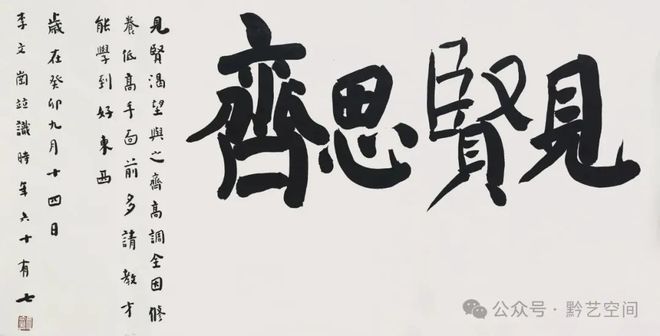 見賢思齊
見賢渴望與之齊高調全因修
養低高手面前多請教才
能學到好東西
歲在癸卯九月十四日
李文竝識時年六十有七
公众号·黔艺空间